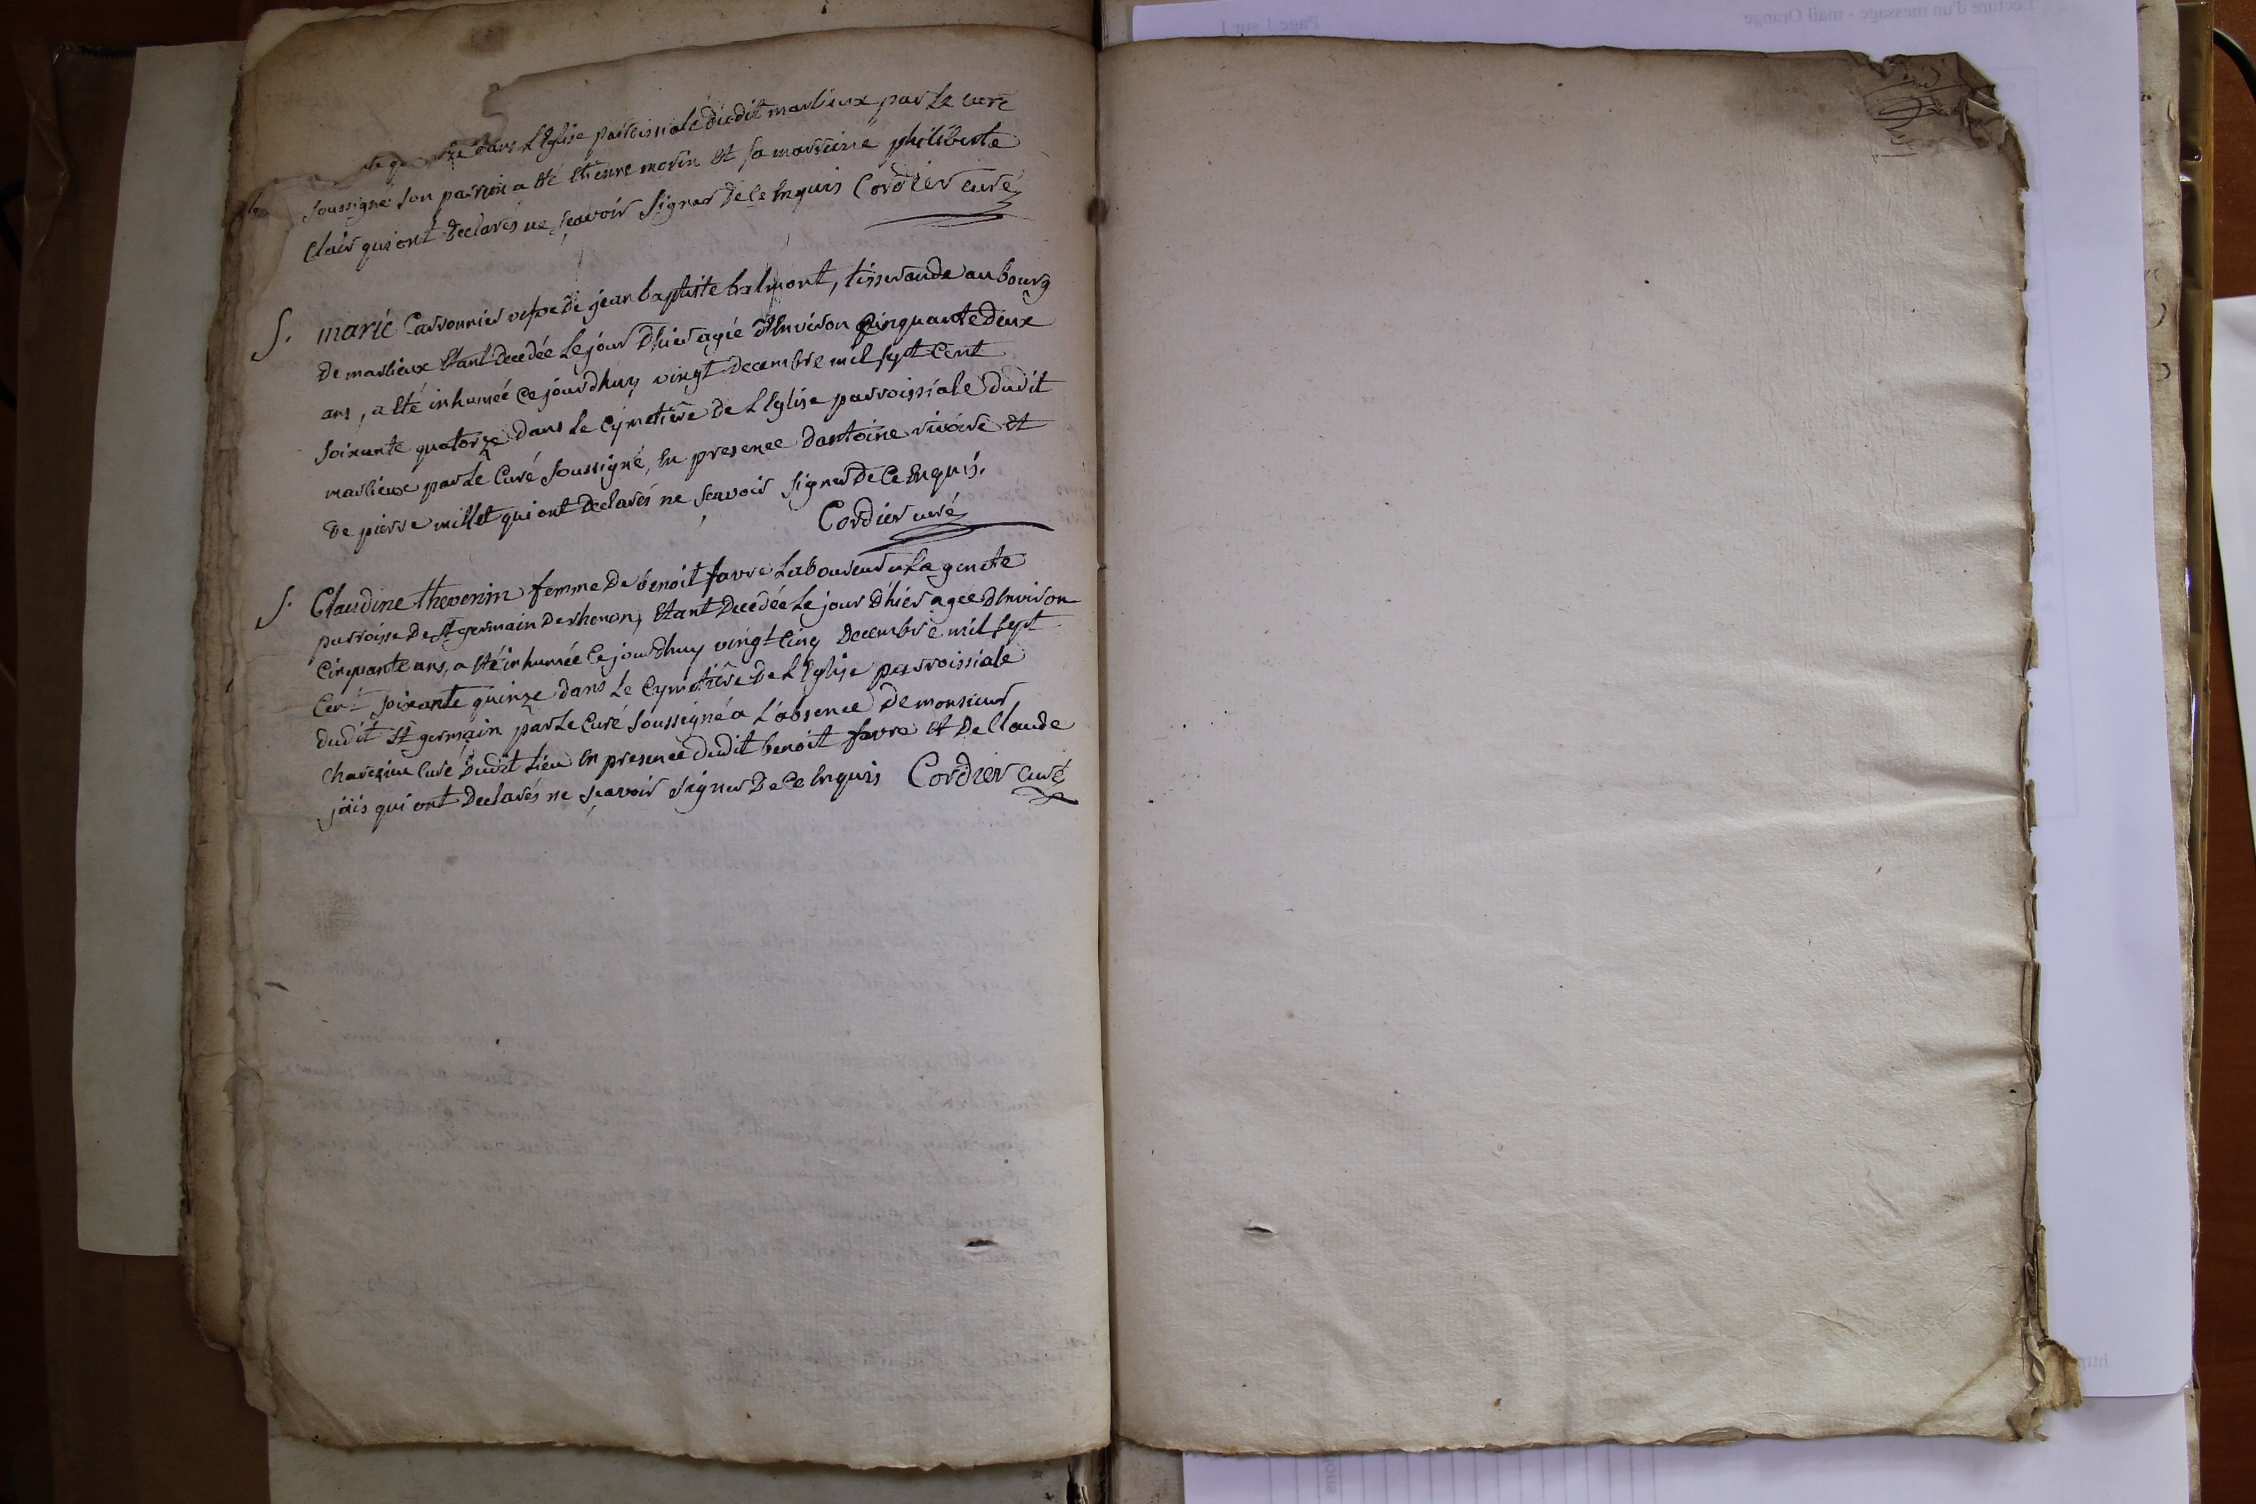 dans L'Eglise paroissiale dudit marlieux par Le curé
soussigné son parrein a été Etienne morin et sa marreine philiberte
Clair qui ont declarés ne sçavoir signer De Ce Enquis Cordier curé
S. marie Carronnier vefve de jean baptiste balmont, tisserande au bourg
De marlieux Etant Decedée Le jour D'hier agée d'Environ Cinquante Deux
ans, a été inhumée Ce jourdhuy vingt Decembre mil sept Cent
soixante quatorze Dans Le Cymetiere De L'Eglise parroissiale dudit
marlieux par Le Curé soussigné, En presence d'antoine rivoire Et
De pierre millet qui ont Declarés ne sçavoir signer De Ce Enquis.
Cordier curé
S. Claudine thevenin femme De benoit favre Laboureur a La genete
parroisse De St germain De rhenon, Etant Decedée Le jour d'hier agée d'Environ
Cinquante ans, a été inhumée Ce jourdhuy vingt Cinq Decembre mil sept
Cent soixante quinze dans Le Cymetière De L'Eglise parroissiale
dudit St germain par Le Curé soussigné a L'absence De monsieur
Curé dudit Lieu En presence dudit benoit favre Et De Claude
jais qui ont Declarés ne sçavoir signer De Ce Enquis Cordier curé